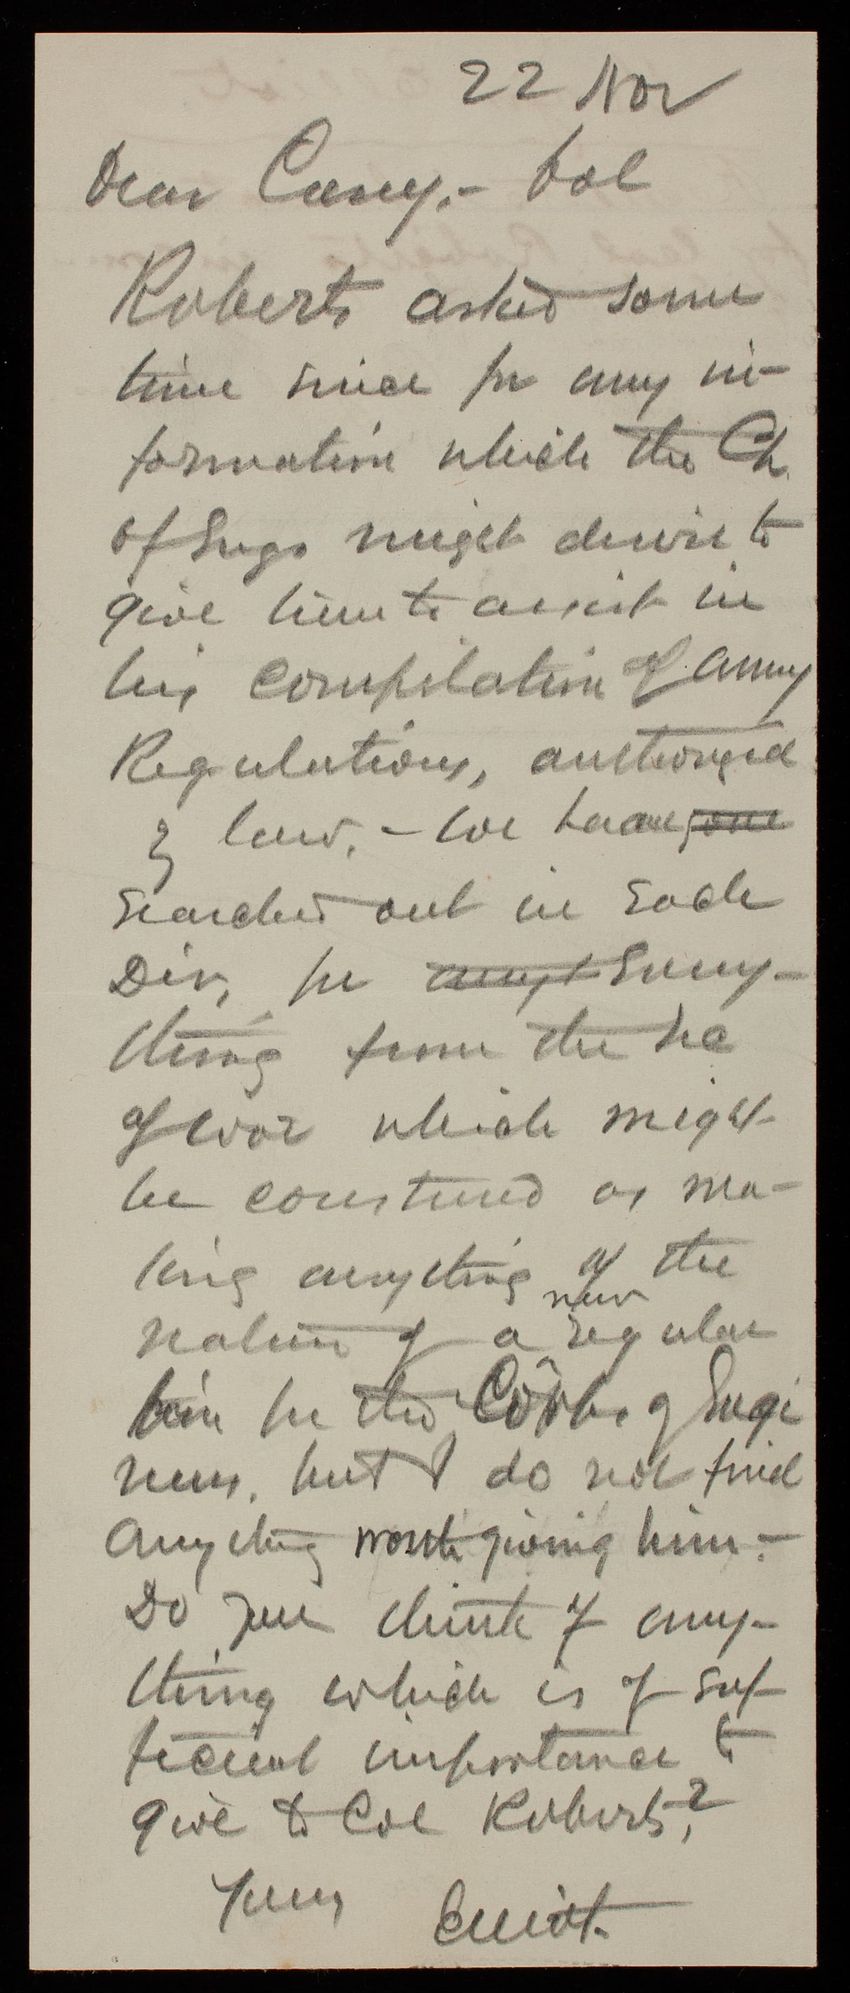 22 Nov
Dear Casey,- Col
Roberts asked some
time since for any in-
formation which the Ch.
of Engs might desire to
give him to assist in
his compilation of Army
Regulations, authorized
by law. - We have
searched out in each
Div, for any Every-
thing from the Sec
of War which might
be construed as ma-
king anything of the
nature of a new regula
tion for the Corps of Engi
neers, but I do not find
anything worth giving him.-
Do you think of any-
thing which is of suf
ficient importance to
give to Col Roberts?
Yours Elliot.